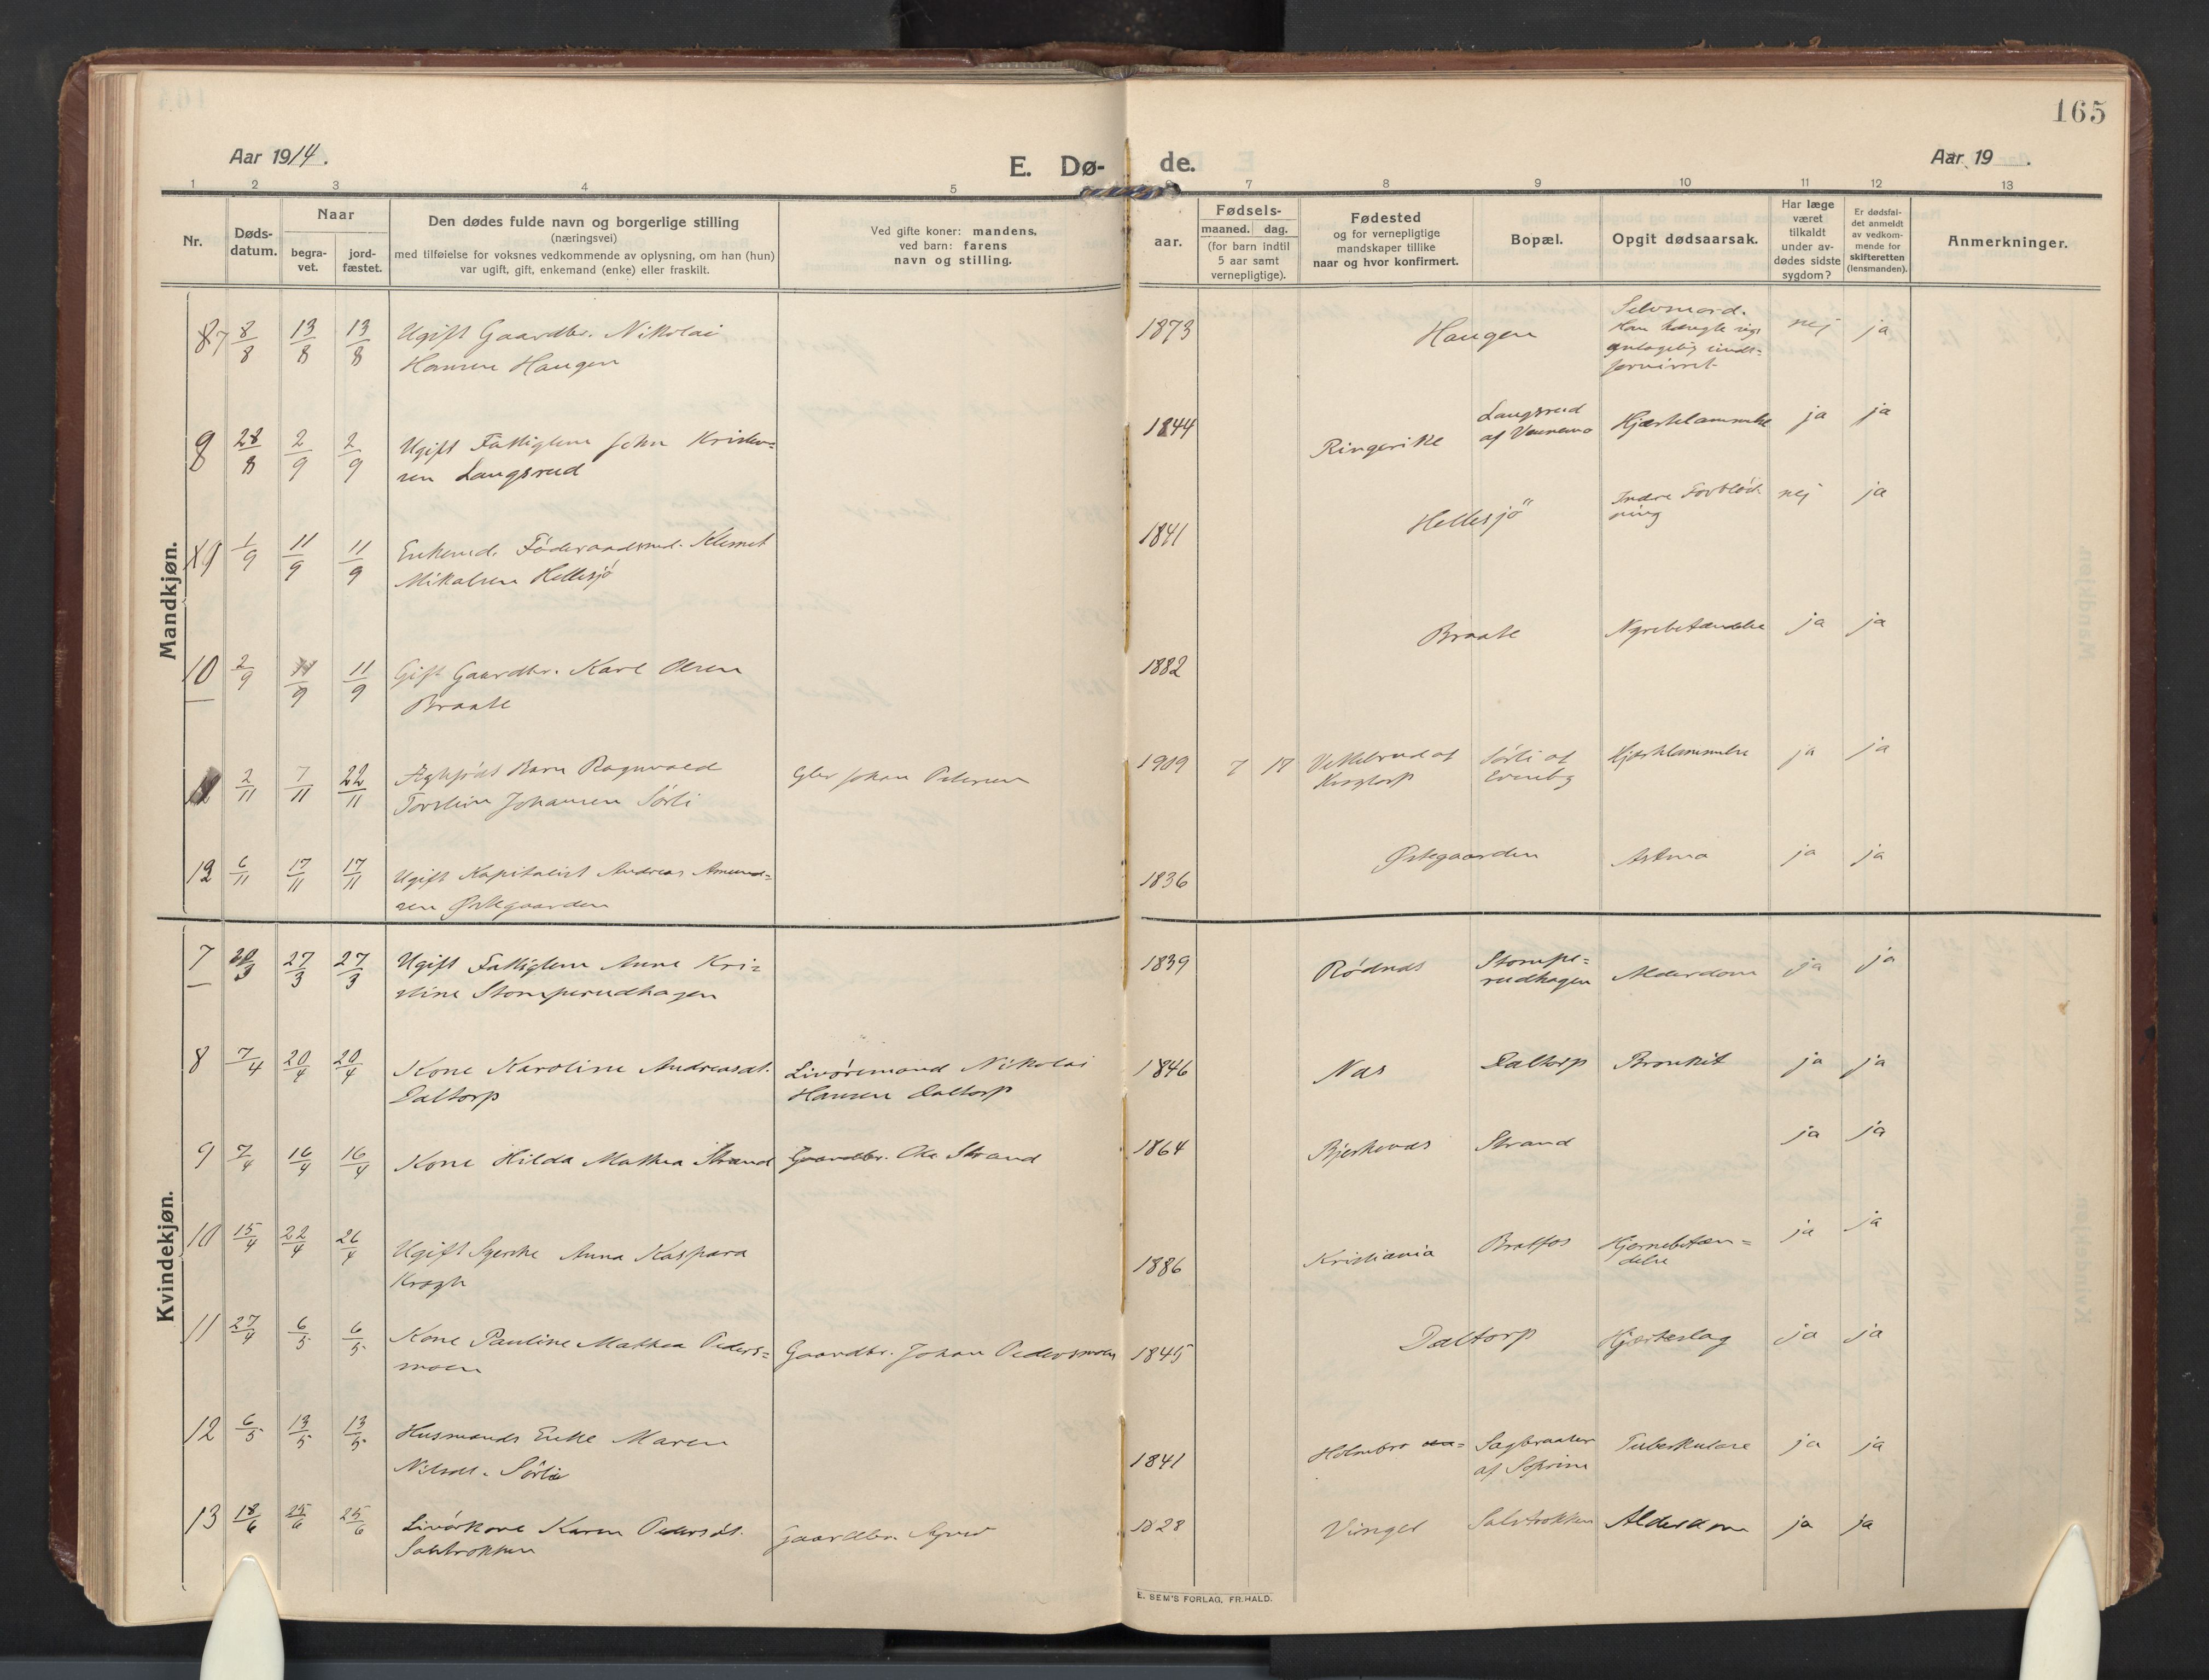 165
Aar 1914.
E. Dø-
de.
Aar 19 .
1 2 3 4 5 7 8 9 10 11 12 13
Nr.
Døds-
datum.
Naar
begra-
vet.
jord-
fæstet.
Den dødes fulde navn og borgerlige stilling
(næringsvei)
med tilføielse for voksnes vedkommende av oplysning, om han (hun)
var ugift, gift, enkemand (enke) eller fraskilt.
Ved gifte koner: mandens,
ved barn: farens
navn og stilling.
aar.
Fødsels-
maaned. dag.
(for barn indtil
5 aar samt
vernepligtige).
Fødested
og for vernepligtige
mandskaper tillike
naar og hvor konfirmert.
Bopæl.
Opgit dødsaarsak.
Har læge
været
tilkaldt
under av-
dødes sidste
sygdom?
Er dødsfal-
det anmeldt
av vedkom-
mende for
skifteretten
(lensmanden).
Anmerkninger.
Mandkjøn.
7 8/8 13/8 13/8 Ugift Gaardbr. Nikolai
Hansen Haugen
1873 Haugen
Selvmord.
nej ja
8 28/8 2/9 2/9 Ugift Fattiglem John Kristen=
sen Langsrud
1844 Ringerike
Langsrud
af
Hjertelammelse ja ja
9 1/9 11/9 11/9 Enkemd. Føderaadsmd. Klemet
Mikalsen Hellesjø
1841 Hellesjö
Indre Forblød-
ning
nej ja
10 2/9 11/9 11/9 Gift Gaardbr. Karl Olsen
Braate
1882 Braate Nyrebetændelse ja ja
2/11 7/11 22/11 Ægtefødt Barn Ragnvald
Torstein Johansen Sørli
Johan Petersen
1909 7 17
Sørli af
Hjertelammelse ja ja
12 6/11 17/11 17/11 Ugift Kapitalist Andreas Amund=
sen Østegaarden
1836 Østegaarden Astma ja ja
Kvindekjøn.
7 20/3 27/3 27/3 Ugift Fattiglem Anne Kri=
stine Stomperudhagen
1839 Rødnæs
Stompe=
rudhagen
Alderdom ja ja
8 7/4 20/4 20/4 Kone Karoline Andreasdt.
Daltorp
Livøremand Nikolai
Hansen Daltorp
1846 Næs Daltorp Bronkit ja ja
9 7/4 16/4 16/4 Kone Hilda Mathea Strand Gaardbr. Ole Strand
1864 Strand ja ja
10 15/4 22/4 26/4 Ugift Anna Kaspara
Krogh
1886 Kristiania Bratfos
Hjernebetæn=
delse
ja ja
11 27/4 6/5 6/5 Kone Pauline Mathea Peders=
moen
Gaardbr. Johan Pedersmoen
1845 Daltorp Hjerteslag ja ja
12 6/5 13/5 13/5 Husmands Enke Maren
Nilsdt. Sørlie
1841
Sagbraaten
af
Tuberkulose ja ja
13 18/6 25/6 25/6 Livørkone Karen Pedersdt.
Gaardbr.
1828 Vinger Alderdom ja ja
E. SEM'S FORLAG, FR.HALD.